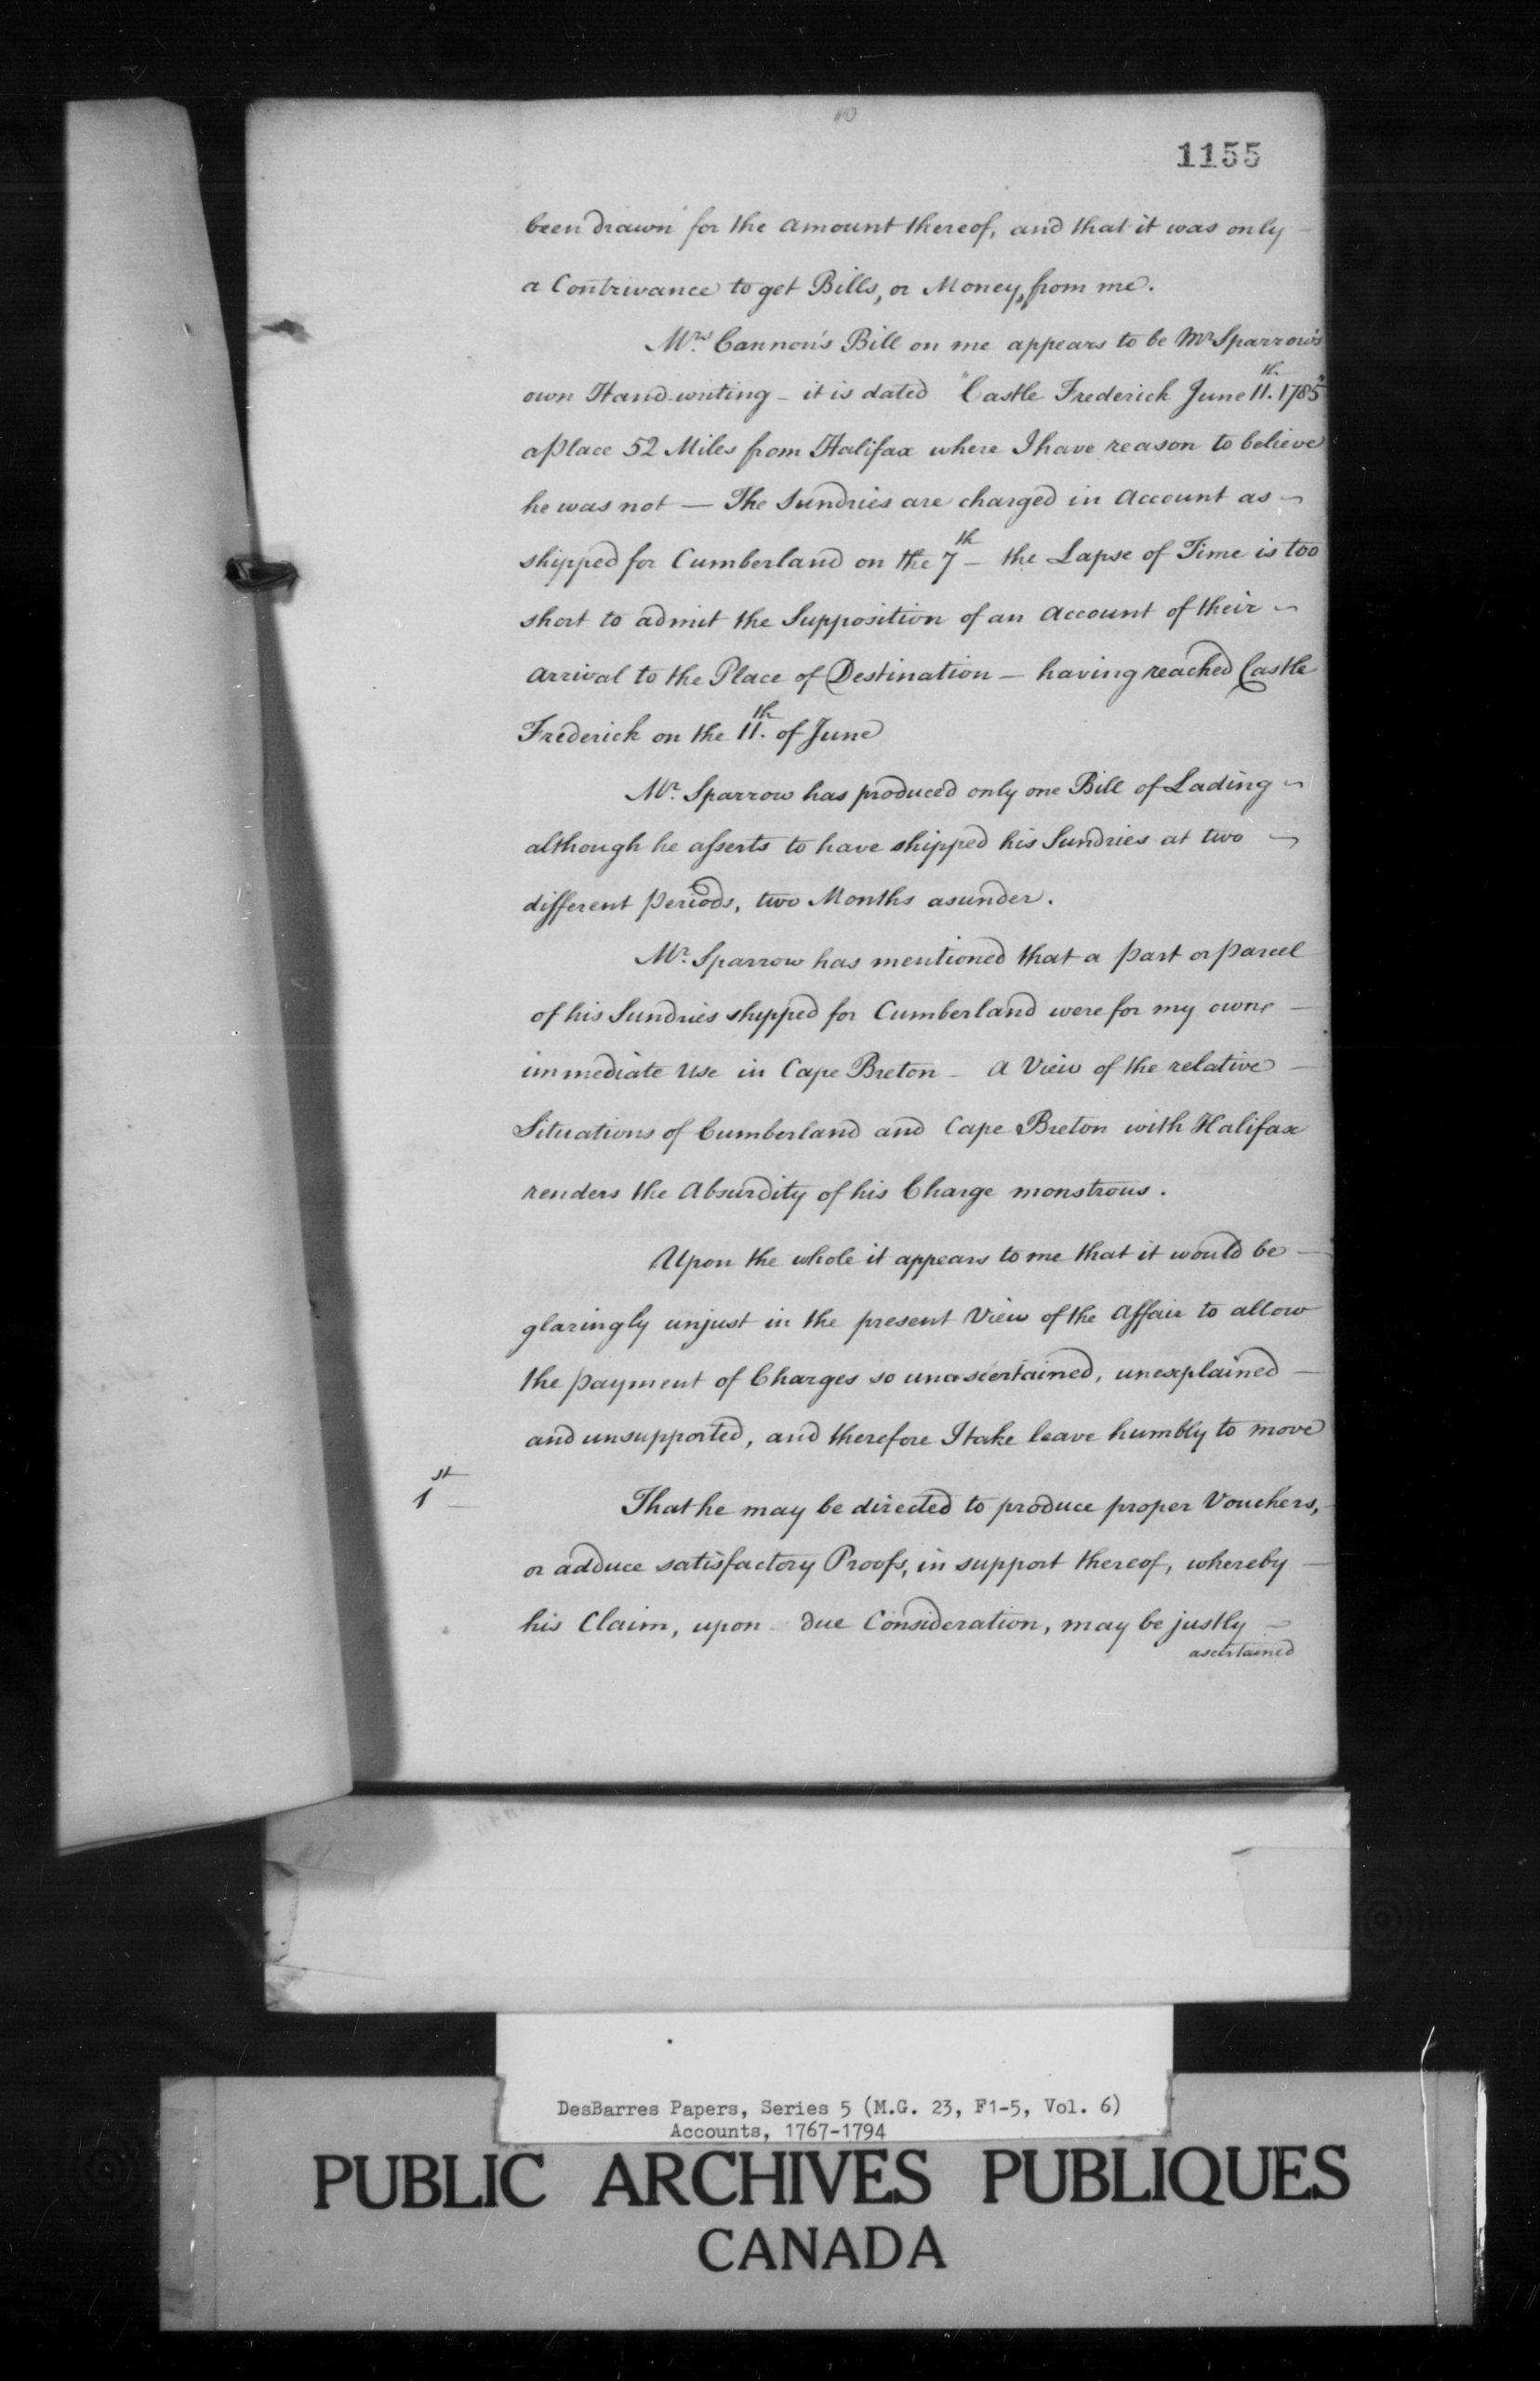 10
1155
been drawn for the amount thereof, and that it was only –
a Contrivance to get Bills, or Money, from me.
Mrs. Cannon's Bill on me appears to be Mr Sparrow's
own Hand-writing – it is dated "Castle Frederick June 11th. 1785"
a place 52 Miles from Halifax where I have reason to believe
he was not — The Sundries are charged in Account as ~
shipped for Cumberland on the 7th – the Lapse of Time is too
short to admit the Supposition of an Account of their ~
arrival to the Place of Destination – having reached Castle
Frederick on the 11th. of June
Mr. Sparrow has produced only one Bill of Lading ~
although he asserts to have shipped his Sundries at two ~
different periods, two Months asunder.
Mr. Sparrow has mentioned that a part or parcel
of his Sundries shipped for Cumberland were for my own –
immediate Use in Cape Breton – A View of the relative –
Situations of Cumberland and Cape Breton with Halifax
renders the Absurdity of his Charge monstrous.
Upon the whole it appears to me that it would be –
glaringly unjust in the present View of the Affair to allow
the payment of Charges so unascertained, unexplained –
and unsupported, and therefore I take leave humbly to move
1st – That he may be directed to produce proper Vouchers,
or adduce satisfactory Proofs, in support thereof, whereby –
his Claim, upon due Consideration, may be justly –
ascertained
DesBarres Papers, Series 5 (M.G. 23, F1-5, Vol. 6)
Accounts, 1767-1794
PUBLIC ARCHIVES PUBLIQUES
CANADA